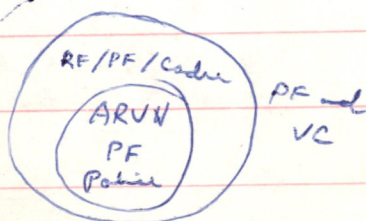 RF/PF/Cadre
ARVN
PF
Police
PF and
VC